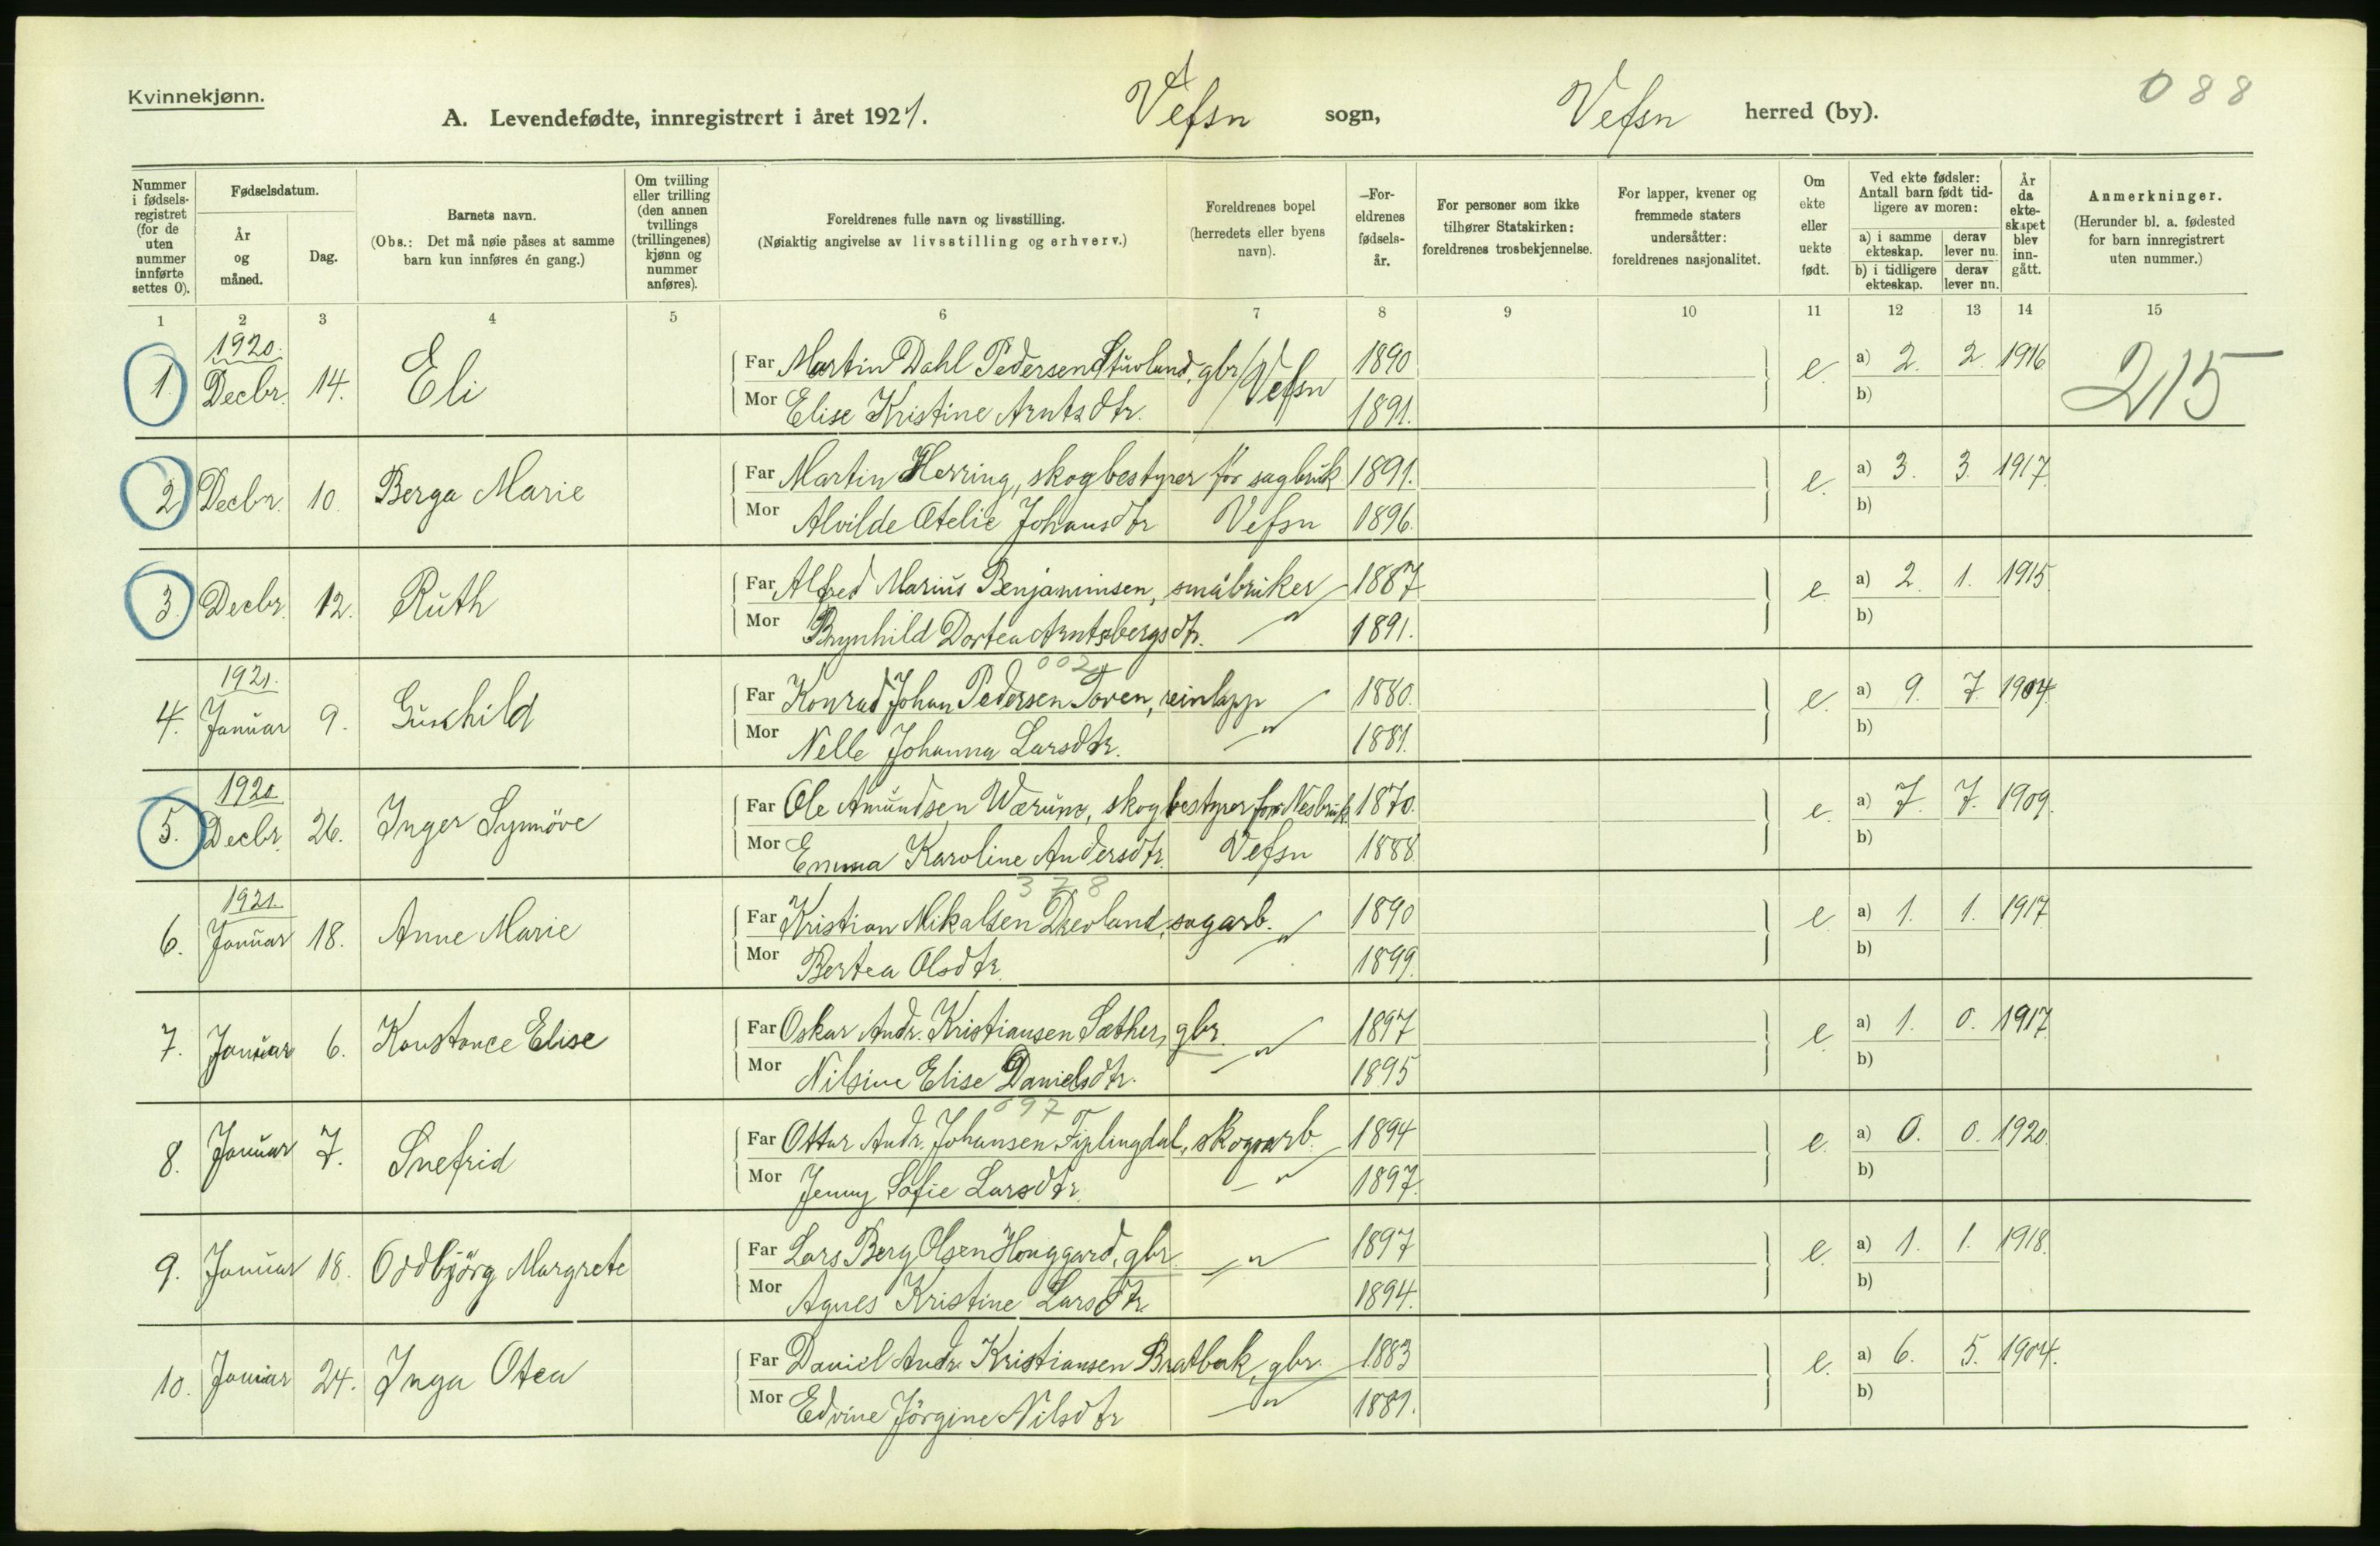 Kvinnekjønn.
088
A. Levendefødte, innregistrert i året 1921. Vefsn sogn, Vefsn herred (by).
Nummer i fødselsregistret (for de uten nummer innførte settes 0).
Fødselsdatum.
År og måned.
Dag.
Barnets navn.
(Obs.: Det må nøie påses at samme barn kun innføres én gang.)
Om tvilling eller trilling (den annen tvillings (trillingenes) kjønn og nummer anføres).
Foreldrenes fulle navn og livsstilling.
(Nøiaktig angivelse av livsstilling og erhverv.)
Foreldrenes bopel (herredets eller byens navn).
Foreldrenes fødselsår.
For personer som ikke tilhører Statskirken: foreldrenes trosbekjennelse.
For lapper, kvener og fremmede staters undersåtter: foreldrenes nasjonalitet.
Om ekte eller uekte født.
Ved ekte fødsler: Antall barn født tidligere av moren:
a) i samme ekteskap. derav lever nu.
b) i tidligere ekteskap. derav lever nu.
År da ekteskapet blev inngått.
Anmerkninger.
(Herunder bl. a. fødested for barn innregistrert uten nummer.)
1 2 3 4 5 6 7 8 9 10 11 12 13 14 15
1920.
1. Decbr. 14. Eli Far Martin Dahl Pedersen Stuvland, gbr. Vefsn 1890 e. a) 2. 2. 1916 215
Mor Elise Kristine Arntsdtr. 1891. b)
2. Decbr. 10. Berga Marie Far Martin Herring, skogbestyrer for sagbruk 1891. e. a) 3. 3. 1917.
Mor Alvilde Otelie Johansdtr Vefsn 1896. b)
3. Decbr. 12. Ruth Far Alfred Marius Benjaminsen, småbruker 1887 e. a) 2. 1. 1915.
Mor Brynhild Dortea Arntsbergsdtr. — " — 1891. b)
1921. 002
4. Januar 9. Gunhild Far Konrad Johan Pedersen Toven, reinlapp 1880. e. a) 9. 7. 1904.
Mor Nelle Johanna Larsdtr. — " — 1881. b)
1920
5. Decbr. 26. Inger Synnöve Far Ole Amundsen Wærum, skogbestyrer for Nesbruk 1870. e. a) 7. 7. 1909.
Mor Emma Karoline Andersdtr. Vefsn 1888. b)
1921. 378
6. Januar 18. Anne Marie Far Kristian Mikalsen Drevland, sagarb. — " — 1890 e. a) 1. 1. 1917.
Mor Bertea Olsdtr. 1899. b)
7. Januar 6. Konstance Elise Far Oskar Andr. Kristiansen Sæther, gbr. — " — 1897 e. a) 1. 0. 1917.
Mor Nilsine Elise Danielsdtr. 1895 b)
097
8. Januar 7. Snefrid Far Ottar Andr. Johansen Fiplingdal, skogarb. 1894 e. a) 0. 0. 1920.
Mor Jenny Sofie Larsdtr. — " — 1897. b)
9. Januar 18. Oddbjörg Margrete Far Lars Berg Olsen Honggard, gbr. — " — 1897 e. a) 1. 1. 1918.
Mor Agnes Kristine Larsdtr 1894. b)
10. Januar 24. Inga Otea Far Daniel Andr. Kristiansen Bratbak, gbr. 1883 e. a) 6. 5. 1904.
Mor Edvine Jörgine Nilsdtr — " — 1881. b)